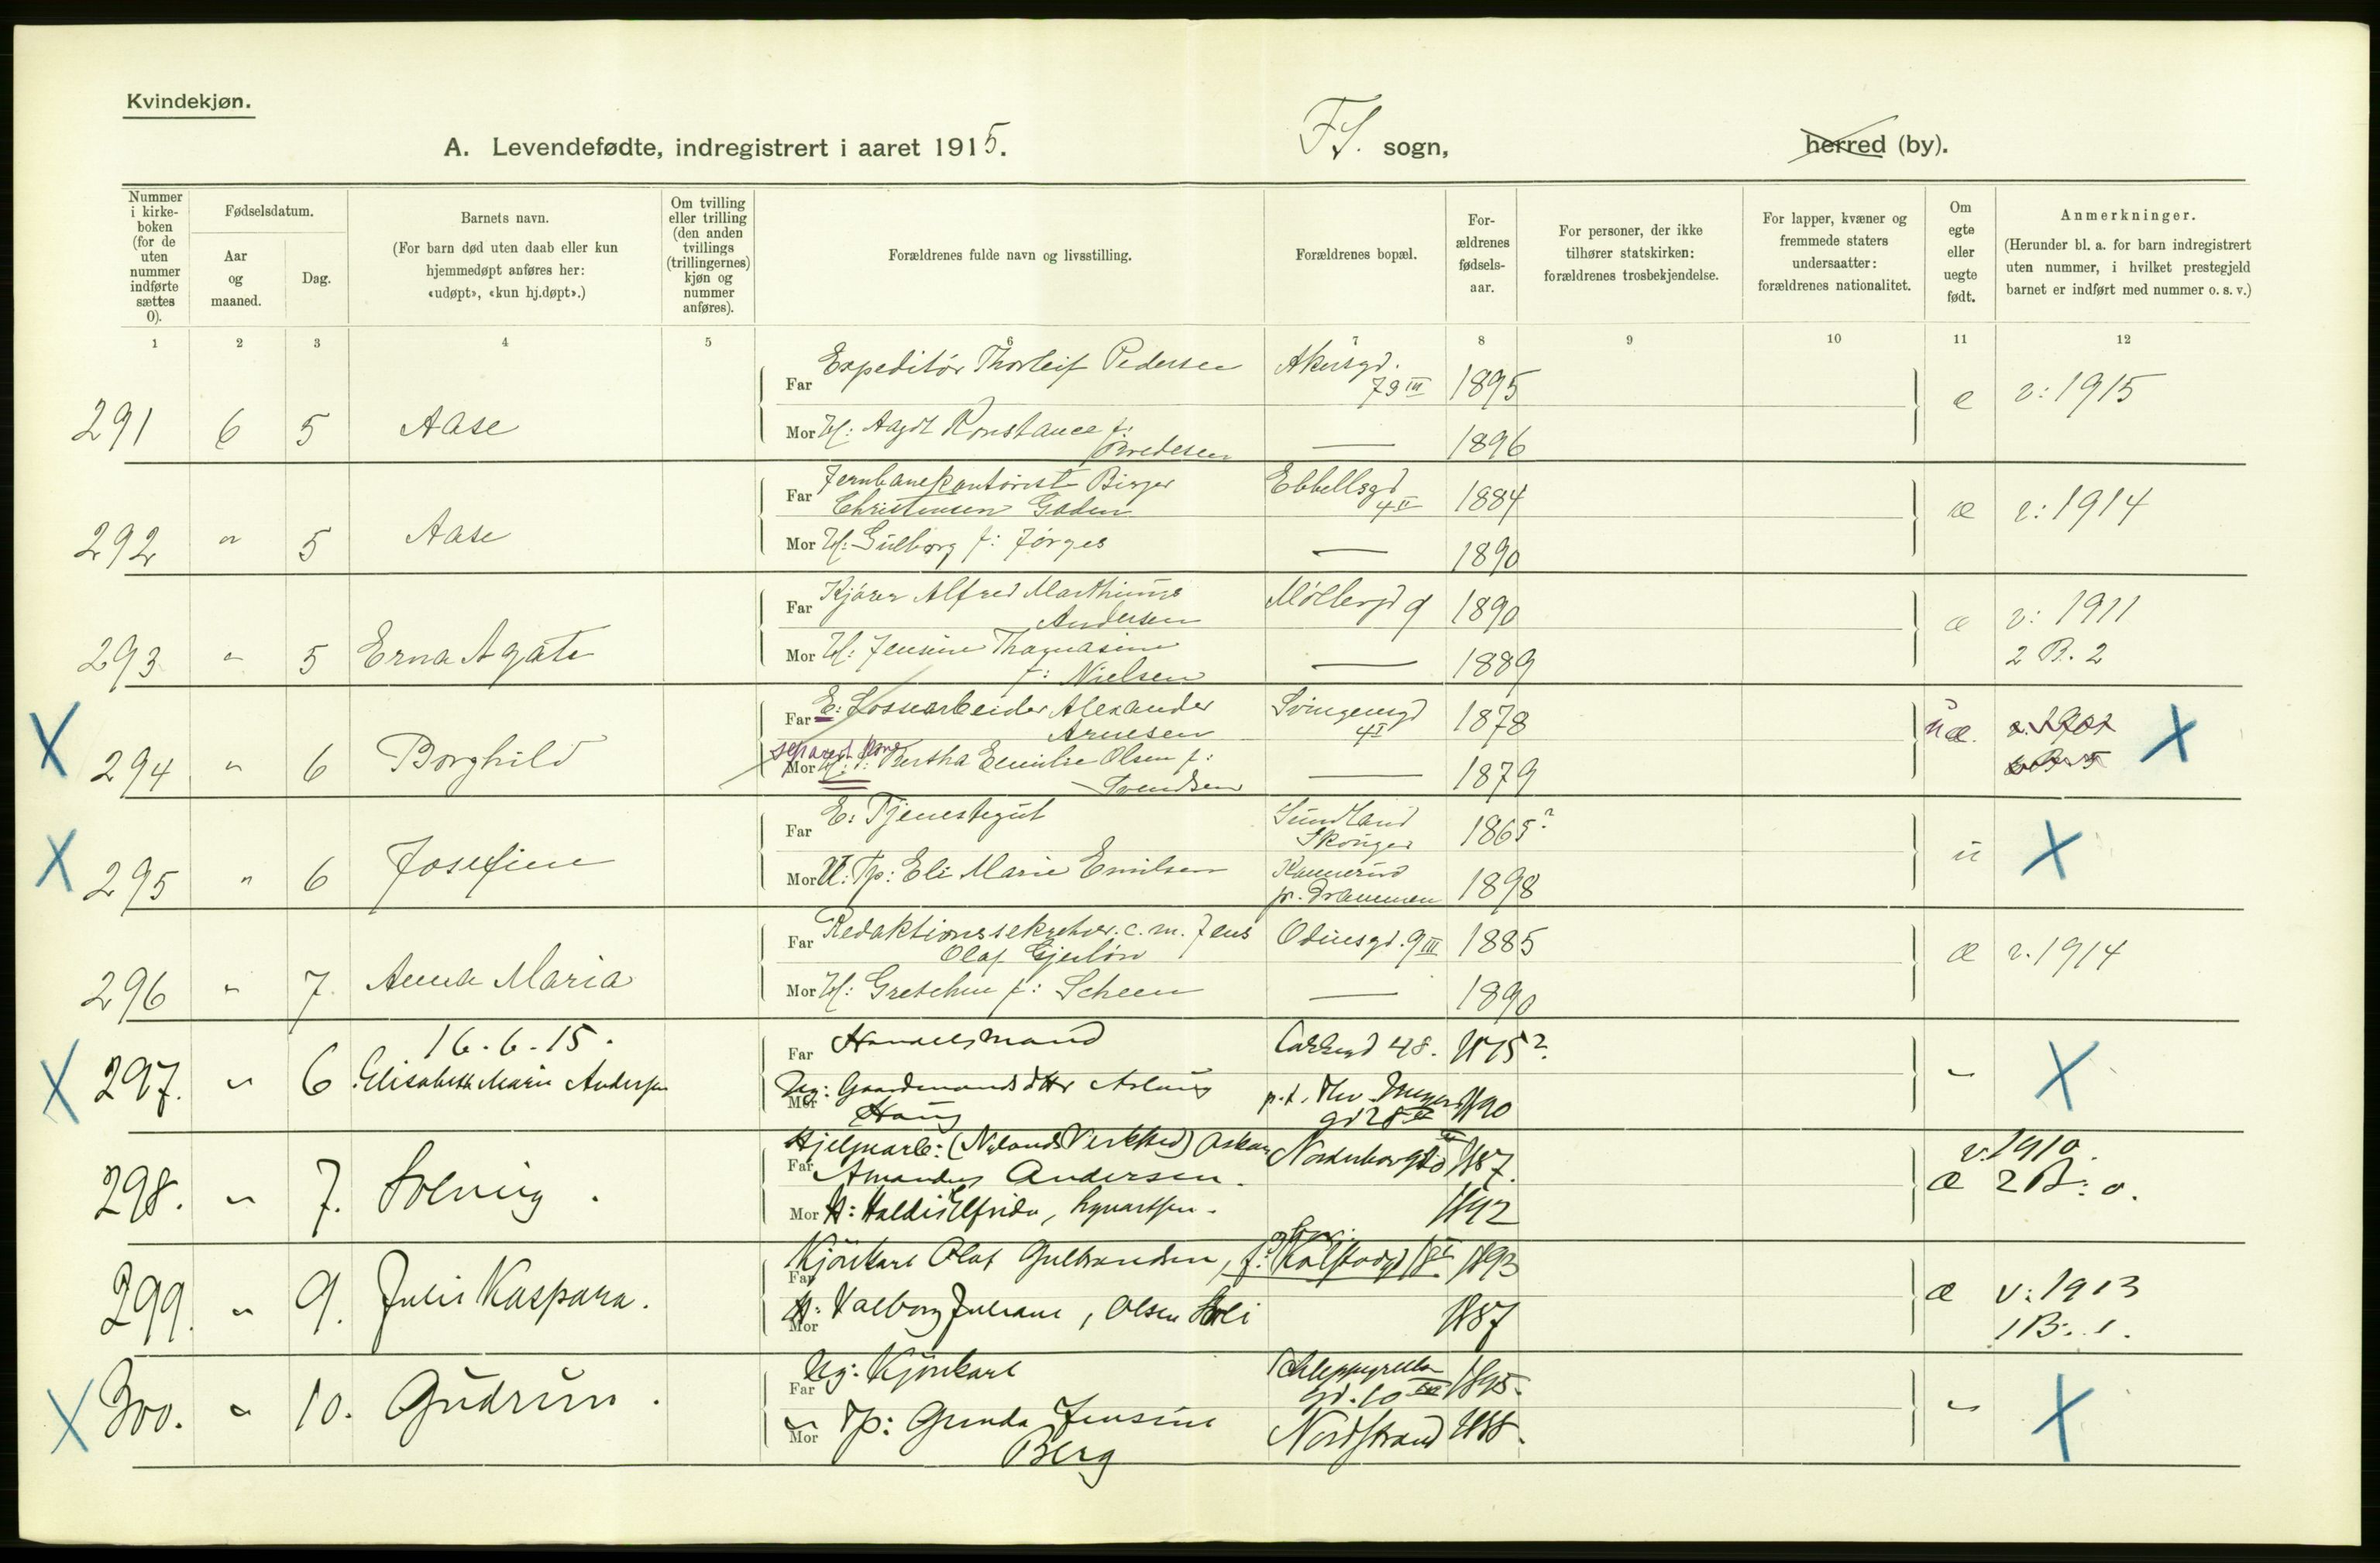 Kvindekjøn.
A. Levendefødte, indregistrert i aaret 1915.
F.S. sogn,
herred (by).
Nummer i kirke-boken (for de uten nummer indførte sættes 0).
Fødselsdatum.
Aar og maaned.
Dag.
Barnets navn.
(For barn død uten daab eller kun hjemmedøpt anføres her: «udøpt», «kun hj.døpt».)
Om tvilling eller trilling (den anden tvillings (trillingernes) kjøn og nummer anføres).
Forældrenes fulde navn og livsstilling.
Forældrenes bopæl.
For-ældrenes fødsels-aar.
For personer, der ikke tilhører statskirken: forældrenes trosbekjendelse.
For lapper, kvæner og fremmede staters undersaatter: forældrenes nationalitet.
Om egte eller uegte født.
Anmerkninger.
(Herunder bl. a. for barn indregistrert uten nummer, i hvilket prestegjeld barnet er indført med nummer o. s. v.)
1 2 3 4 5 6 7 8 9 10 11 12
Far Expeditør Thorleif Pedersen Akersgd. 1895
79 III
291 6 5 Aase e v: 1915
Mor H: Agot Konstance f: — 1896
Bredesen
Far Jernbanekontorist Birger Ebbellsgd 1884
Christensen Gaden 4 II
292 " 5 Aase æ v: 1914
Mor H: Gulborg f: Jørges — 1890
Far Kjører Alfred Marthinius Møllergd 9 1890
Andersen
293 " 5 Erna Agate æ v: 1911
2 B. 2
Mor H: Jensine Thomasine — 1889
f: Nielsen
Far E: Løsarbeider Alexander Svingengd 1878
Arnesen 4 I
X 294 " 6 Borghild uæ. X
separert kone
Mor Bertha Emilie Olsen f: — 1879
Svendsen
Far E: Tjenestegut Sundland 1865?
Skouger
X 295 " 6 Josefine u X
Mor U: Tp: Eli Marie Emilsen 1898
pr. Drammen
Far Redaktionssekretær c. m. Jens Odinsgd. 9 III 1885
Olaf
296 " 7 Anna Maria æ v. 1914
Mor H: Gretchen f: Scheen — 1890
16.6.15.
Far Handelsmand 48. 1875?
X 297. " 6 Elisabeth Marie Andersen " X
Mor Ug: Gaardmandsdtter Aslaug 1890
Haug
Hjelpearb: (Nylands Verksted) Oskar
Far Amandus Andersen. 1887.
298. " 7. Solveig. æ v. 1910.
2 B: 0.
Mor H: Haldis Elfrida, 1892
Far Kjørekarl Olaf Gulbrandsen, f: 1893
299. " 9. Julie Kaspara. æ v: 1913
1 B: 1.
Mor H: Valborg Juliane, Olsen 1887
Far Ug: Kjørekarl Schleppegrells 1895.
gd. 10 III
X 300. " 10. Gudrun. " X
Mor " Tp: Gunda Jensine Nordstrand 1888.
Berg